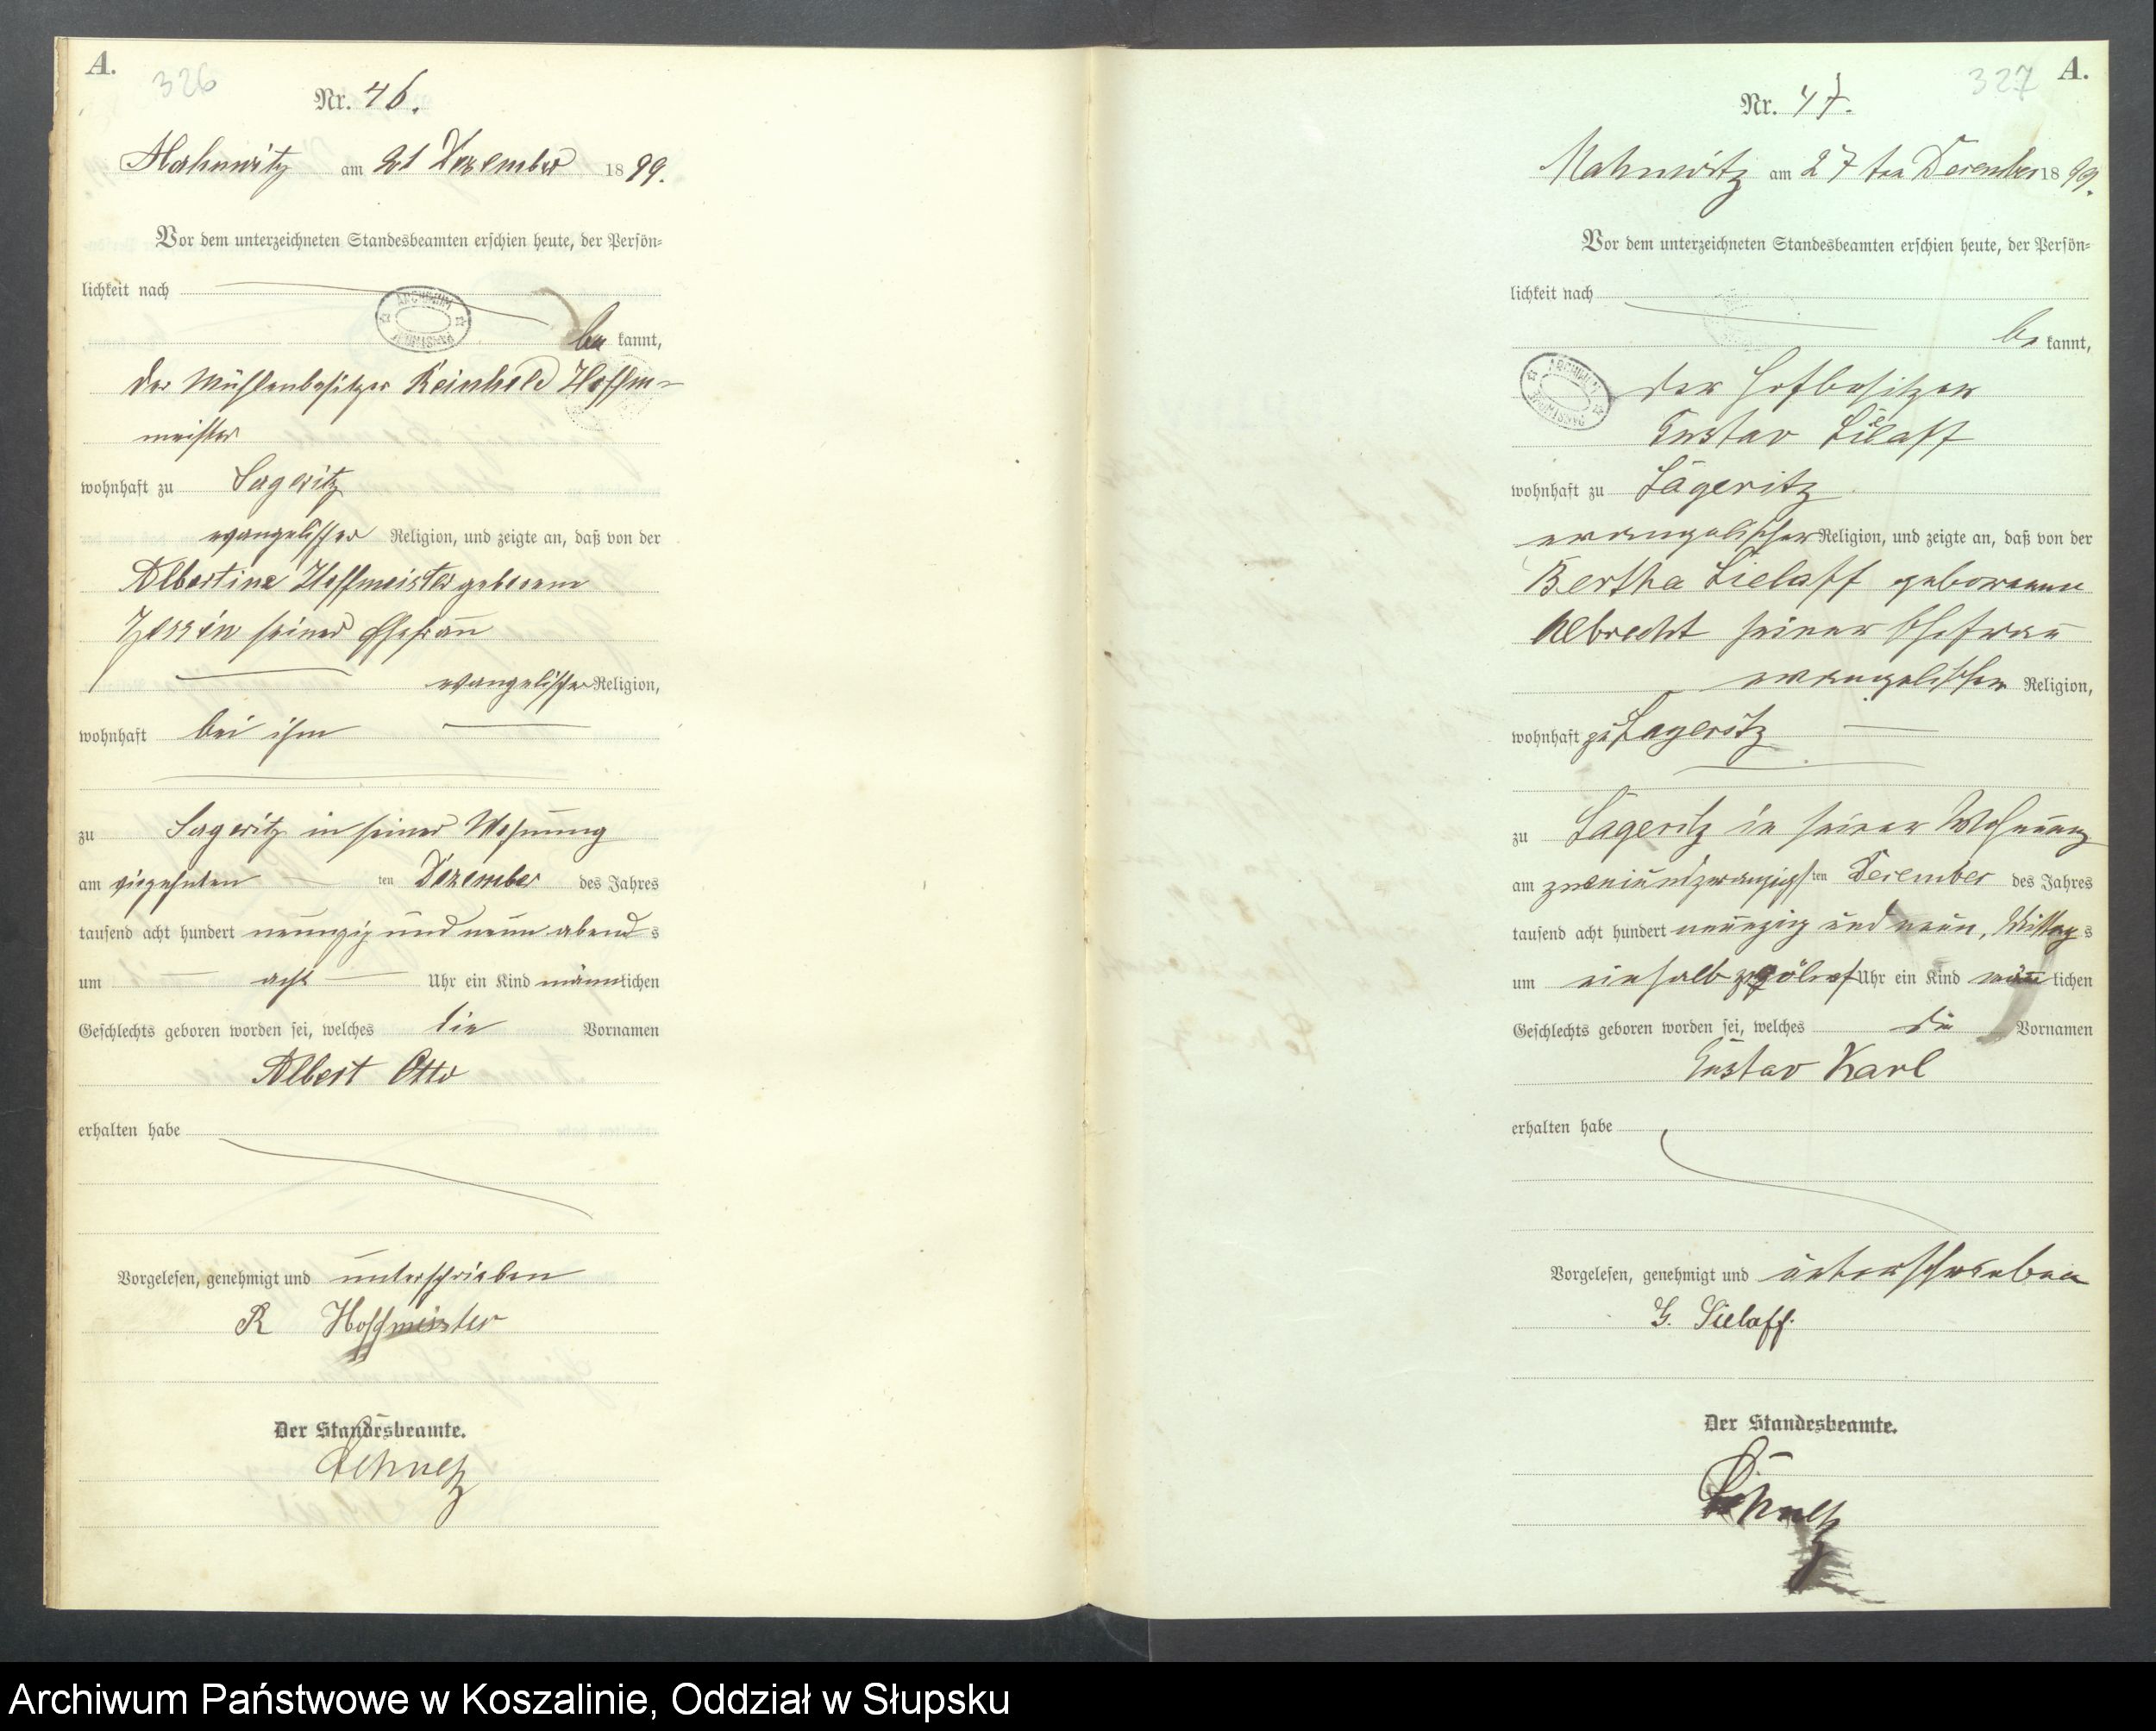 A.
326
Nr. 46.
Mahnwitz am 21 Dezember 1899.
Vor dem unterzeichneten Standesbeamten erschien heute, der Persön-
lichkeit nach
be kannt,
der Mühlenbesitzer Reinhold Hoffm-
meister
wohnhaft zu Sageritz
evangelischer Religion, und zeigte an, daß von der
Albertine Hoffmeister geborene
seiner Ehefrau
evangelischer Religion,
wohnhaft bei ihm
zu Sageritz in seiner Wohnung
am vierzehnten ten Dezember des Jahres
tausend acht hundert neunzig und neun abend s
um acht Uhr ein Kind männlichen
Geschlechts geboren worden sei, welches die Vornamen
Albert Otto
erhalten habe
Vorgelesen, genehmigt und unterschrieben
R Hoffmeister
Der Standesbeamte.
Schultz
327 A.
Nr. 47.
Mahnwitz am 27 ten Dezember 1899.
Vor dem unterzeichneten Standesbeamten erschien heute, der Persön-
lichkeit nach
be kannt,
ARCHIWUM PAŃSTWOWE
der Hofbesitzer
Gustav Sielaff
wohnhaft zu Sageritz
evangelischer Religion, und zeigte an, daß von der
Bertha Sielaff geborenen
Albrecht seiner Ehefrau
evangelischer Religion,
wohnhaft zu Sageritz
zu Sageritz in seiner Wohnung
am zweiundzwanzigsten Dezember des Jahres
tausend acht hundert neunzig und neun, Mittag s
um einhalb zwölf Uhr ein Kind männlichen
Geschlechts geboren worden sei, welches die Vornamen
Gustav Karl
erhalten habe
Vorgelesen, genehmigt und unterschrieben
G. Sielaff.
Der Standesbeamte.
Schultz
Archiwum Państwowe w Koszalinie, Oddział w Słupsku